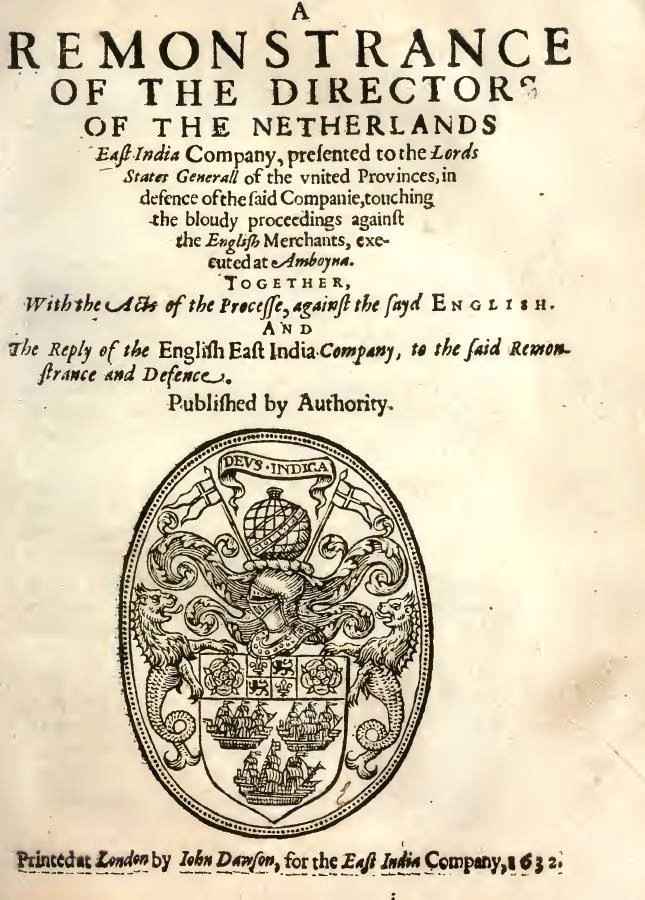 A
REMONSTRANCE
OF THE DIRECTORS
OF THE NETHERLANDS
Eaſt India Company, preſented to the Lords
States Generall of the vnited Provinces, in
defence of the ſaid Companie, touching
the bloudy proceedings againſt
the Engliſh Merchants, exe-
cuted at Amboyna.
TOGETHER,
With the Acts of the Proceſſe, againſt the ſayd ENGLISH.
AND
The Reply of the Engliſh Eaſt India Company, to the ſaid Remon-
ſtrance and Defence.
Publiſhed by Authority.
DEVS·INDICA
Printed at London by Iohn Dawſon, for the Eaſt India Company, 1632.